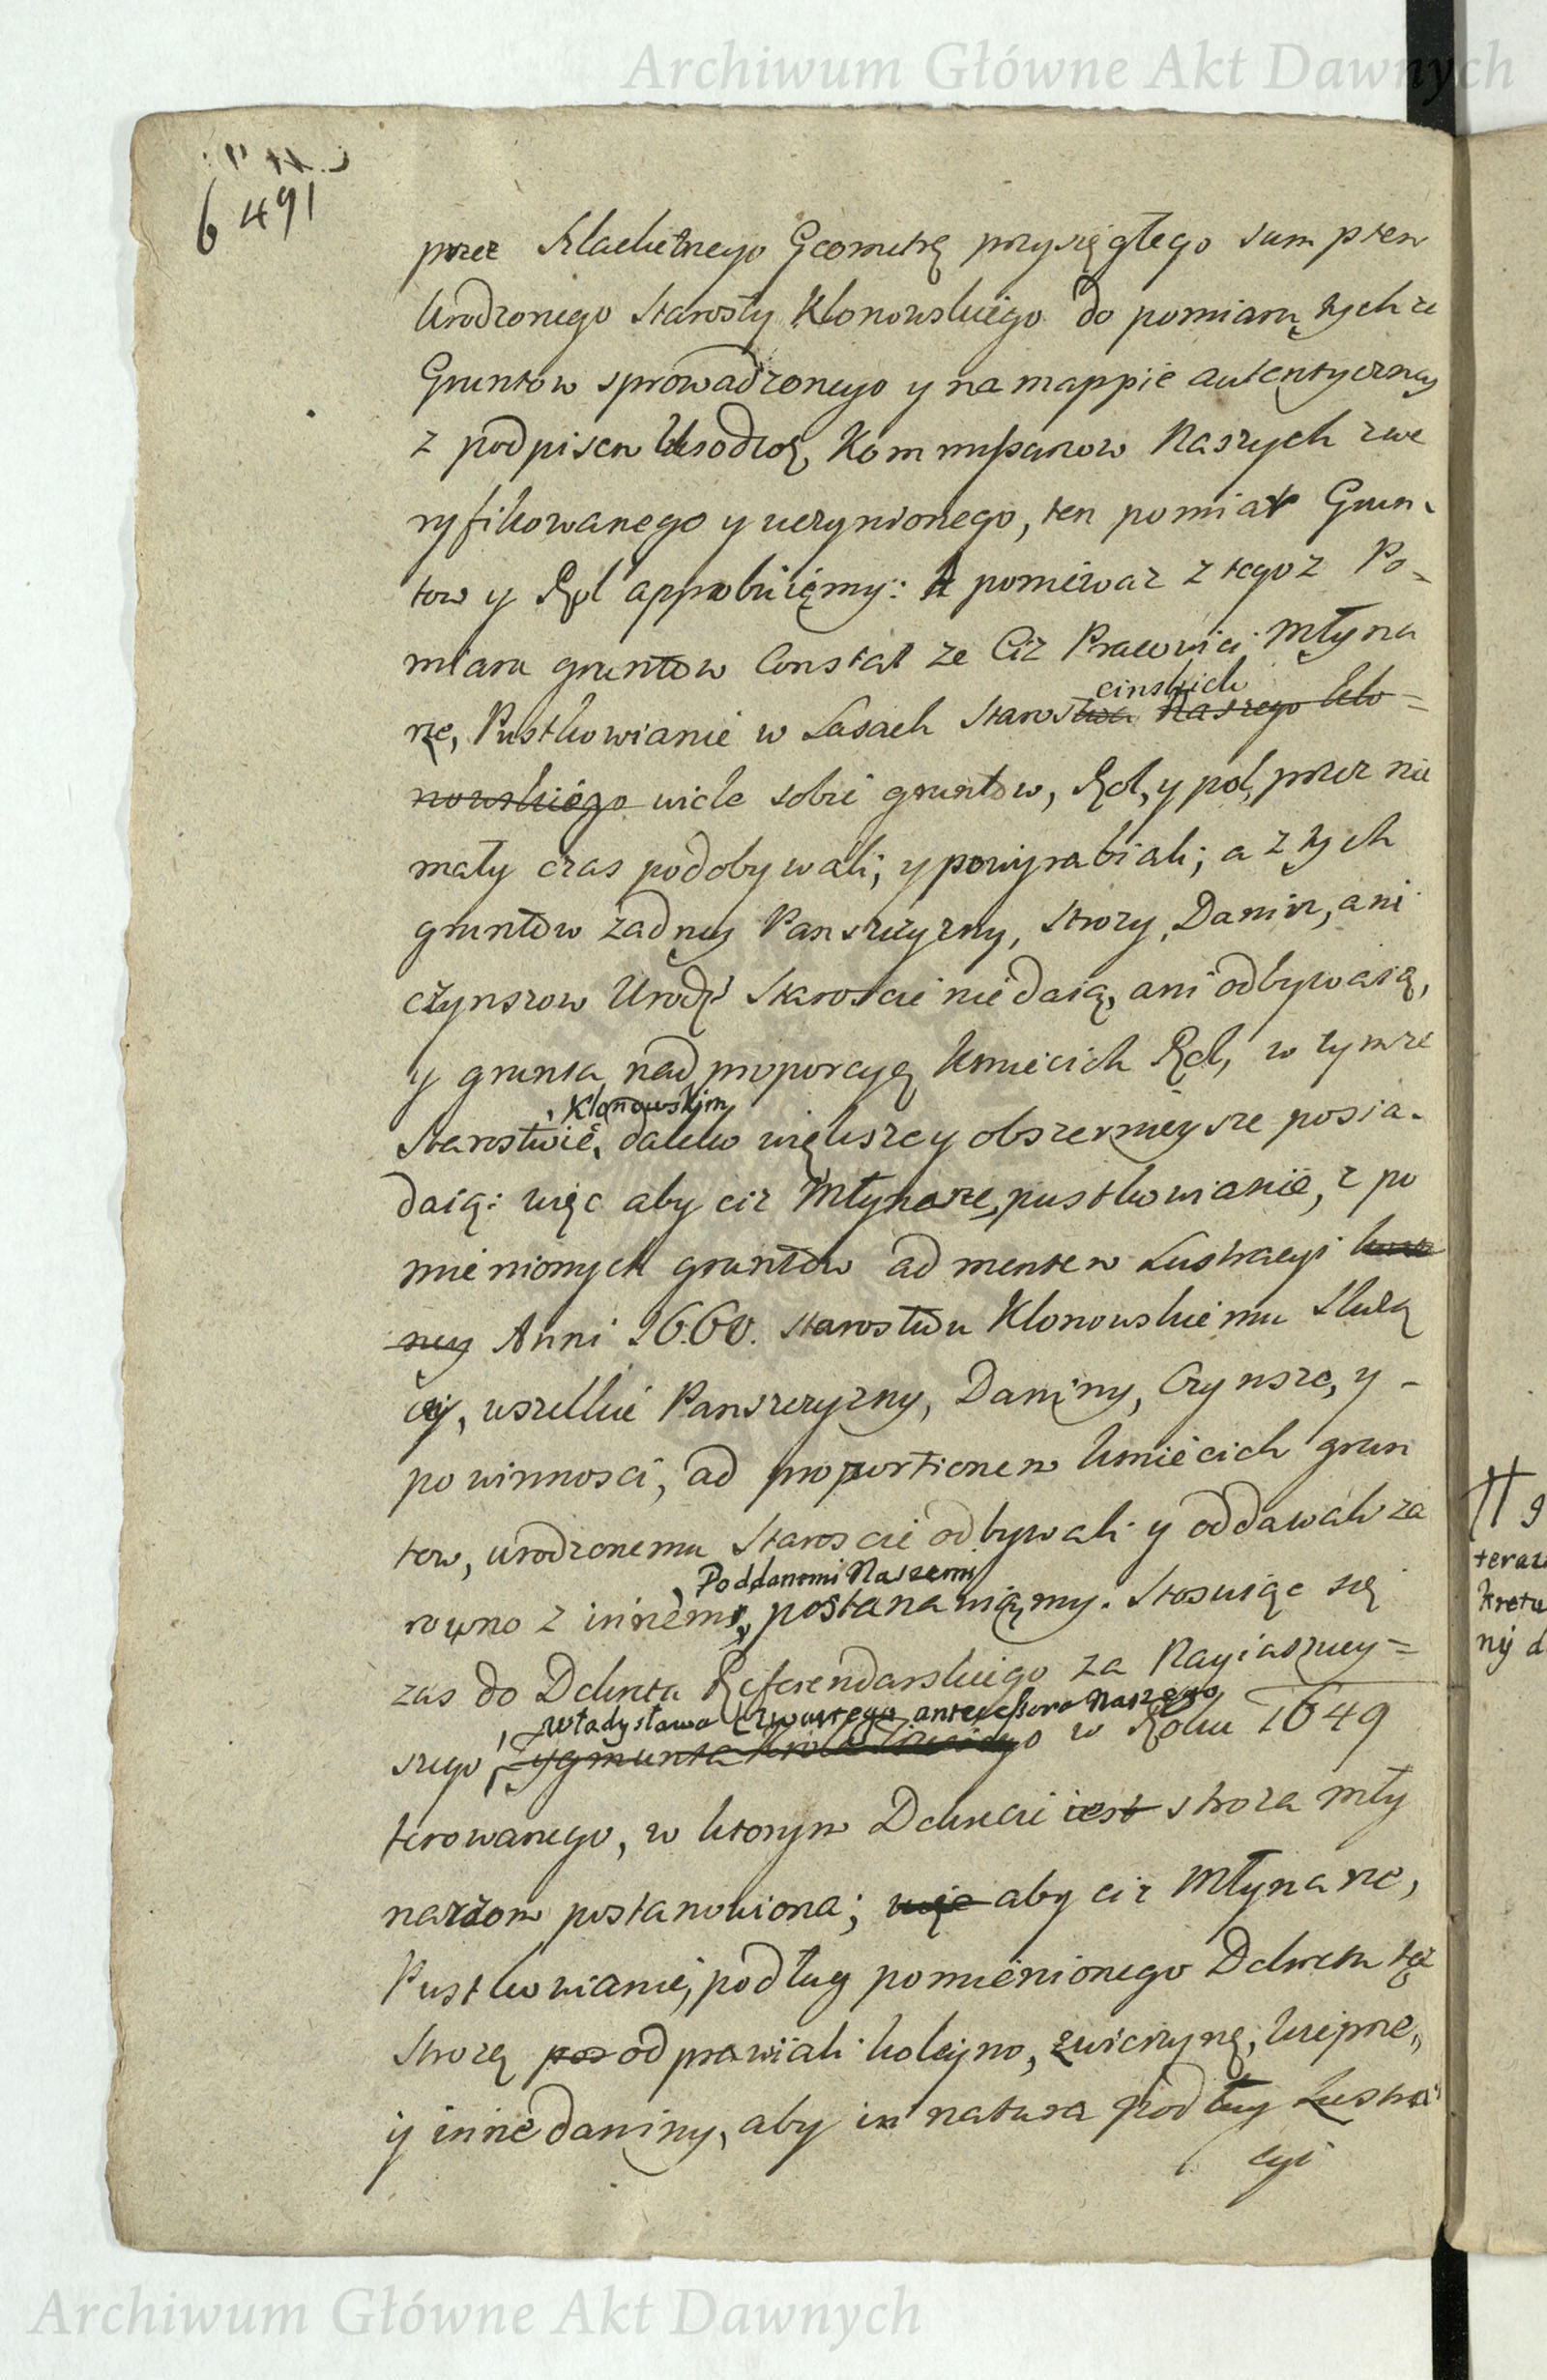 Archiwum Główne Akt Dawnych
6 491
przez Szlachetnego Geometrę przysięgłego sumptem
Urodzonego Starosty Klonowskiego do pomiaru tychze
Gruntow sprowadzonego y na mappie autentyczney
z podpisem Urodzo, Kommissarzow Naszych zwe
ryfikowanego y uczynionego, ten pomiar Grun-
tow y Rol approbuięmy: A poniewaz z tegoz Po-
miaru gruntow Constat ze Ciz Pracowici Młyna
rze, Pustkowianie w Lasach Starostwa Naszego Klo=
cinskich
nowskiego wiele sobie gruntow, Rol, y pol, przez nie
mały czas podobywali; y powyrabiali; a z tych
gruntow zadney Panszczyzny, Strozy, Danin, ani
czynszow Urodz: Staroscie nie daią, ani odbywaią,
y grunta nad proporcyą kmiecich Rol, w tymze
Klonowskim
Starostwie, daleko większe y obszernieysze posia-
daią: więc aby ciz Młynarze, pustkowianie, z po
mienionych gruntow ad mentem Lustracyi
ney Anni 1660. Starostwu Klonowskiemu Słuzą
cey, wszelkie Panszczyzny, Daniny, Czynsze, y -
powinnosci, ad proportionem kmiecich grun
tow, urodzonemu Staroscie odbywali y oddawali za
Poddanemi Naszemi
rowno z innemi, postanawiąmy. Stosuiąc się
zas do Dekretu Referendarskiego za Nayiasniey=
Władysława Czwartego antecessora Naszego
szego Zygmunta Krola Trzeciego w Roku 1649
ferowanego, w ktorym Dekrecie iest stroza mły
narzom postanowiona; więc aby ciz Młynarze,
Pustkowianie, podług pomienionego Dekretu tęż
Strozę pos odprawiali koleyno, zwierzynę, wieprze,
y inne daniny, aby in natura podług Lustra
cyi
Archiwum Główne Akt Dawnych